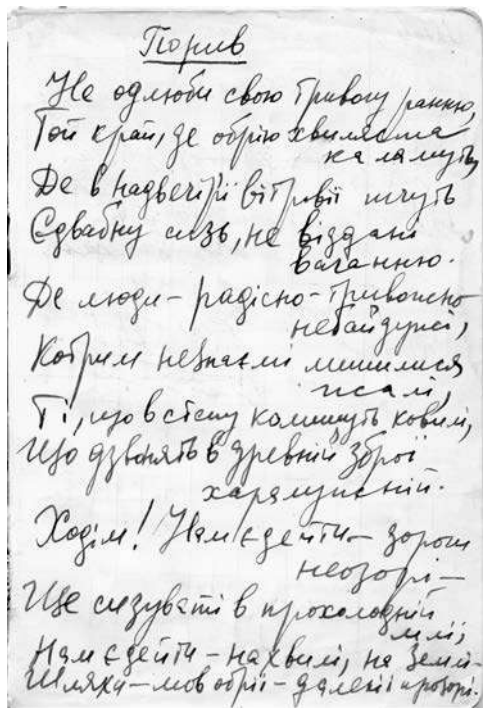 Порив
Не одлюби свою тривогу ранню,
Той край, де обрію хвиляста
каламуть,
Де в надвечір'ї вітровії тчуть
Єдвабну сизь, не віддані
ваганню.
Де люди – радісно-тривожно
небайдужі,
Котрим незнаємі лишилися
жалі,
Ті, що в степу колишуть ковилі,
Що дзвонять в древній зброї
харалужній.
Ходім! Нам є де йти – дороги
неозорі –
Ще сизуваті в прохолодній
млі,
Нам є де йти – на хвилі, на землі –
Шляхи – мов обрії – далекі і прозорі.